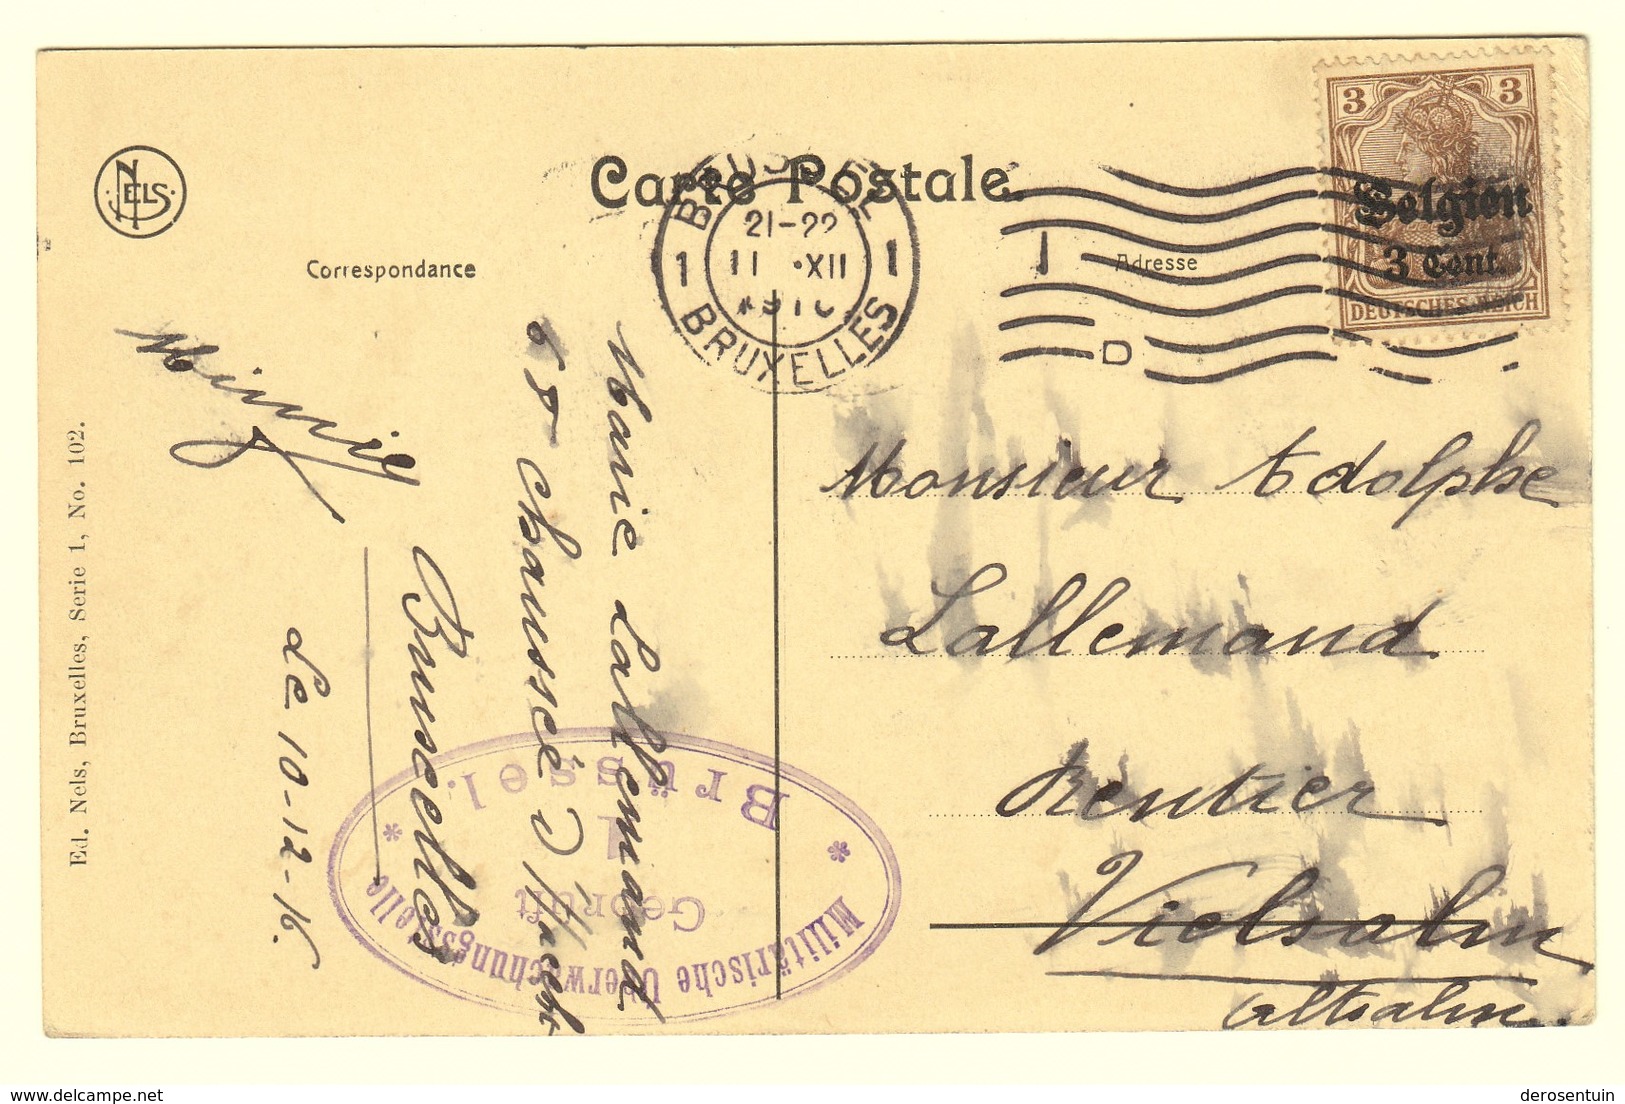 NELS
Carte Postale
Correspondance
Adresse
BRUSSEL
21-22
1 11 •XII 1
BRUXELLES
D
3 3
Belgien
3 Cent.
DEUTSCHES REICH
Monsieur Adolphe
Lallemand
Rentier
Vielsalm
Altsalm.
Marie Lallemand
chaussée d'Haecht
Bruxelles
Le 10-12-16.
Militärische Überwachungsstelle
Geprüft
1
Brüssel.
Ed. Nels, Bruxelles, Serie 1, No. 102.
delcampe.net
derosentuin